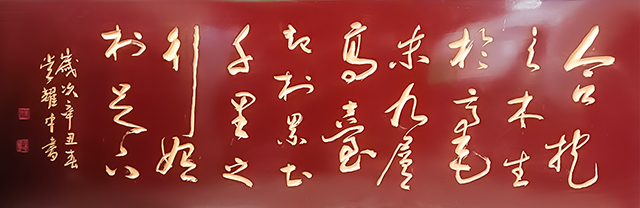 合抱
之木生
於毫
末九層
高臺
起於累土
千里之
行始
於足下
歲次辛丑春
耀中書